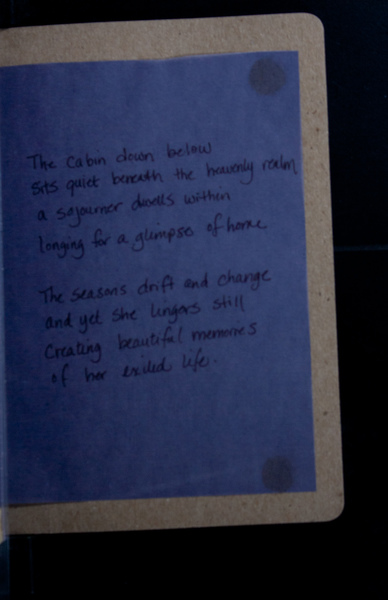 The cabin down below
sits quiet beneath the heavenly realm
a sojourner dwells within
longing for a glimpse of home
The seasons drift and change
and yet she lingers still
Creating beautiful memories
of her exiled life.